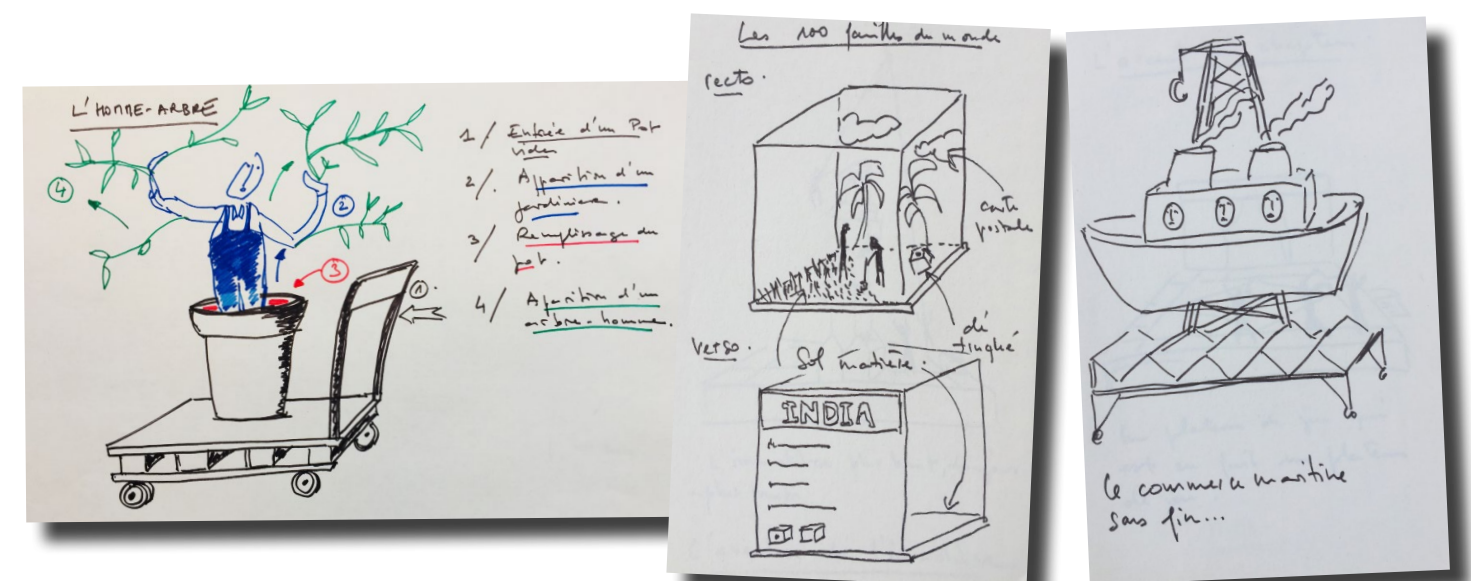 L'HOMME-ARBRE
1/ Entrée d'un Pot
vide
2/. Apparition d'un
jardinier.
3/ Remplissage du
pot.
4/ Aparition d'un
arbre-homme.
4
2
3
1.
Les 100 familles du monde
recto.
carte
postale
dé
verso.
Sol matière.
INDIA
le commerce maritime
sans fin...